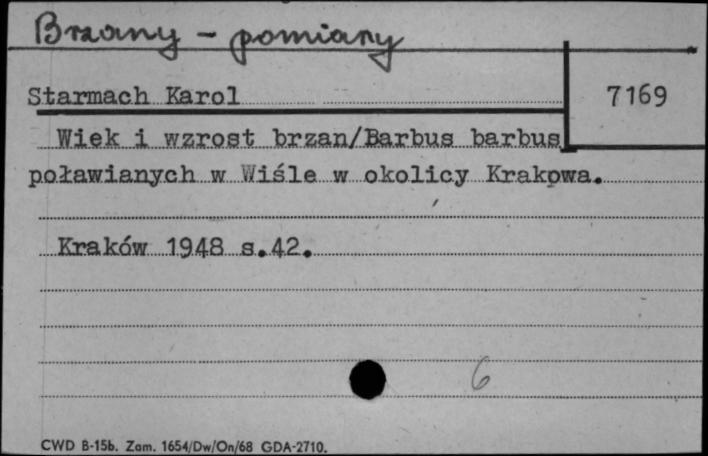 Brzany - pomiary
Starmach Karol
7169
Wiek i wzrost brzan/Barbus barbus
poławianych w Wiśle w okolicy Krakowa.
Kraków 1948 s.42.
6
CWD B-15b. Zam. 1654/Dw/On/68 GDA-2710.